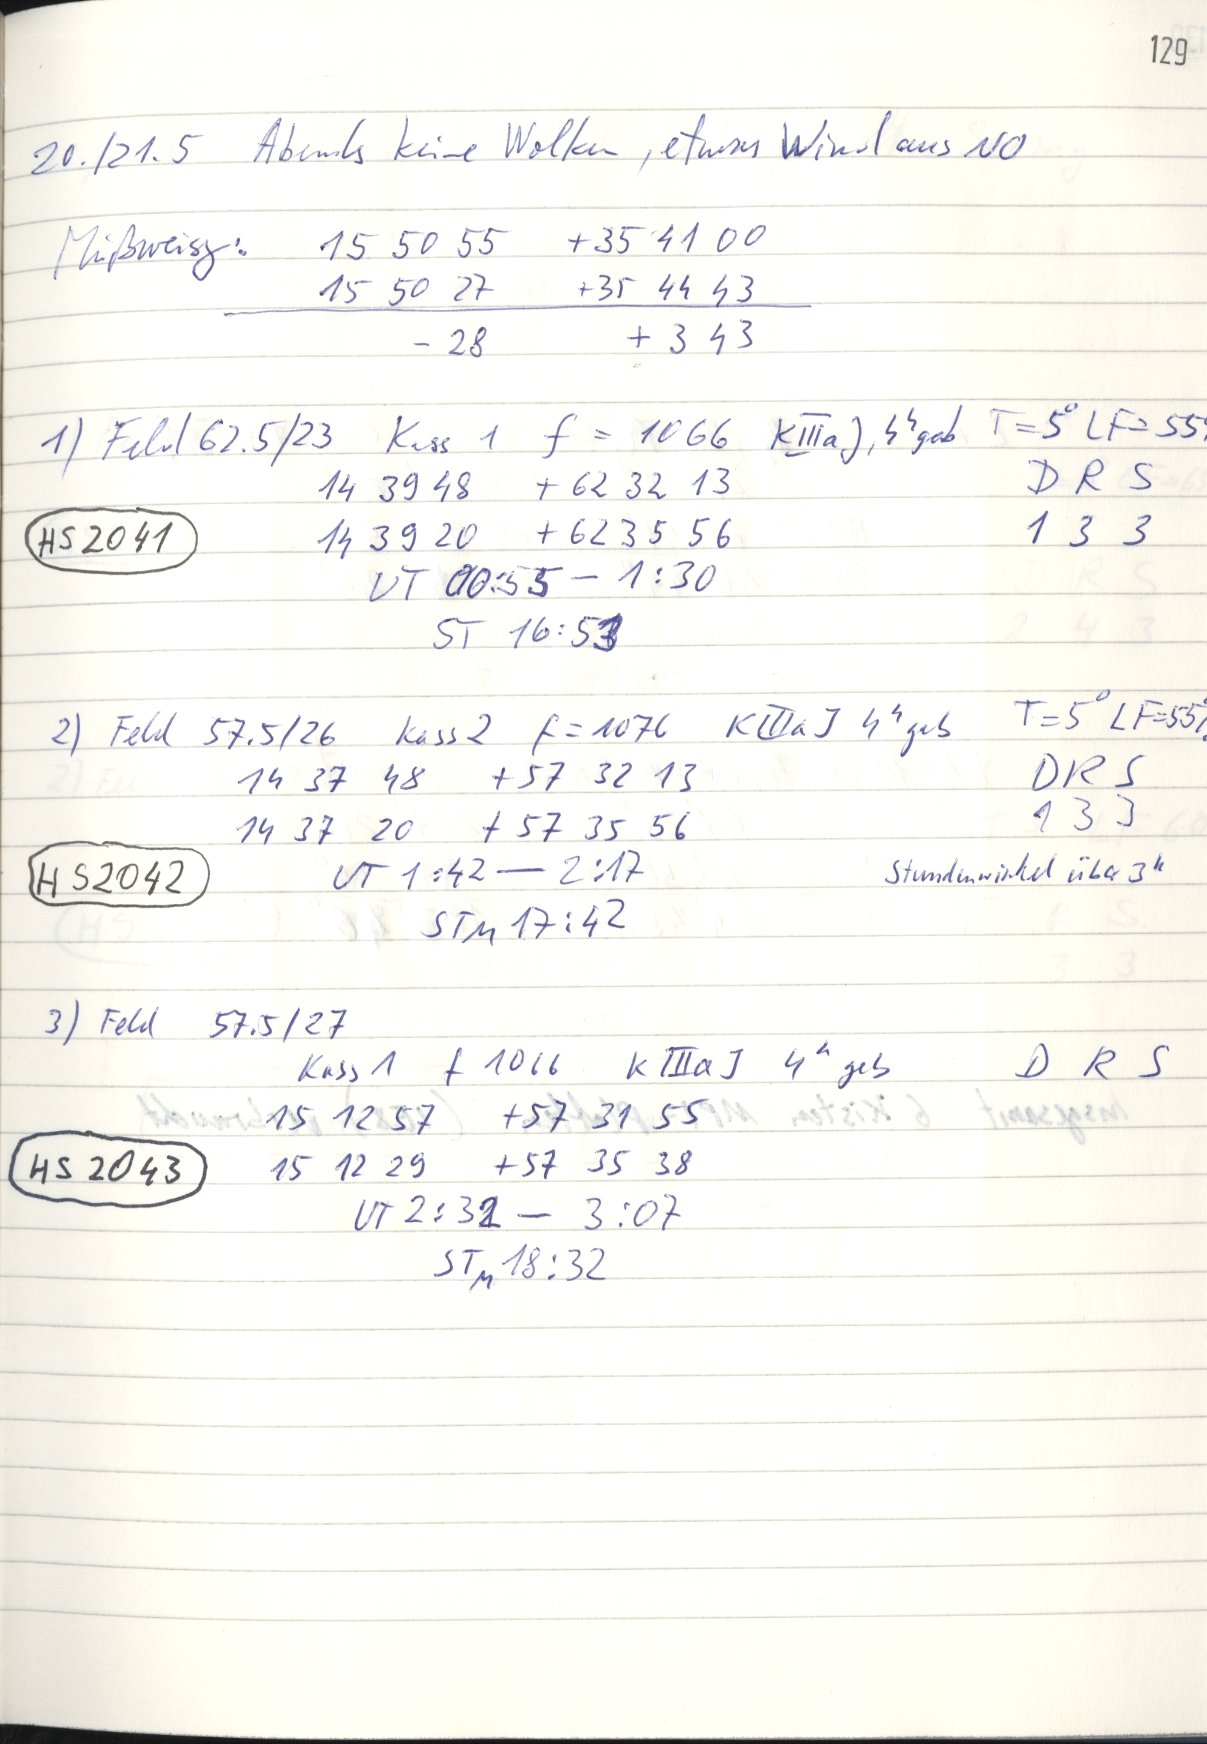 129
20./21.5 Abends keine Wolken, etwas Wind aus NO
Mißweisg: 15 50 55 +35 41 00
15 50 27 +35 44 43
- 28 + 3 43
1) Feld 62.5/23 Kass 1 f = 1066 KIIIaJ, 4h geb T=5° LF=55%
14 39 48 +62 32 13 D R S
HS 2041 14 39 20 +62 35 56 1 3 3
UT 00:55 – 1:30
ST 16:53
2) Feld 57.5/26 Kass 2 f = 1076 KIIIaJ 4h geb T=5° LF=55%
14 37 48 +57 32 13 D R S
14 37 20 +57 35 56 1 3 3
HS 2042 UT 1:42 — 2:17 Stundenwinkel über 3h
STM 17:42
3) Feld 57.5/27
Kass 1 f 1066 KIIIaJ 4h geb D R S
15 12 57 +57 31 55
HS 2043 15 12 29 +57 35 38
UT 2:32 — 3:07
STM 18:32